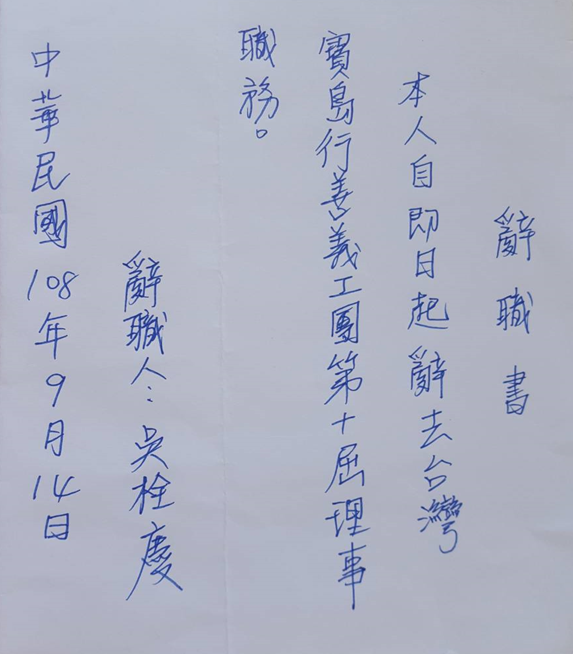 辭職書
本人自即日起辭去台灣
寶島行善義工團第十屆理事
職務。
辭職人:吳栓慶
中華民國108年9月14日